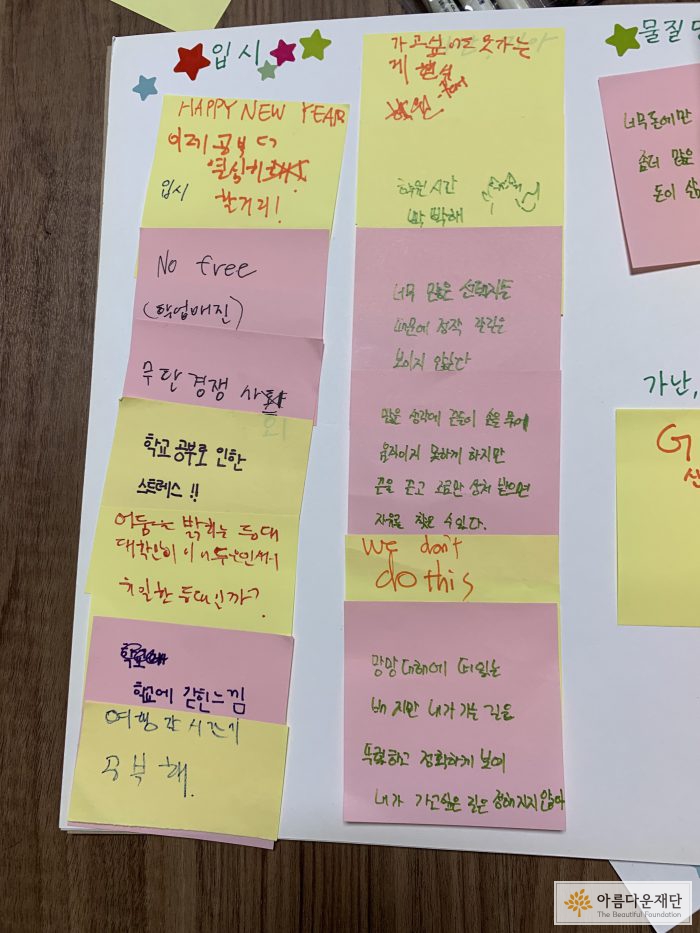 입시
HAPPY NEW YEAR
이제 공부 더
열심히
할거리!
입시
No free
(학업매진)
무단 경쟁 사
회
학교 공부로 인한
스트레스 !!
어둠 밝히는 등대
대학만이 이 어두운
유일한 등대인가?
학교에 갇힌느낌
여행갈 시간에
공부해.
가고싶어도 못가는
게 현실
학원
학원 시간
빡빡해
너무 많은 선택지들
때문에 정작 갈길은
보이지 않는다
많은 생각에 끈들이 손을 묶어
움직이지 못하게 하지만
끈을 끊고 조금만 상처 받으면
자유를 찾을 수 있다.
We don't
do this
망망대해에 떠있는
배 지만 내가 가는 길은
뚜렷하고 정확하게 보여
내가 가고싶은 길은 정해지지 않아
물질
너무 돈에만
좀더 많은
돈이
가난,
G
아름다운재단
The Beautiful Foundation